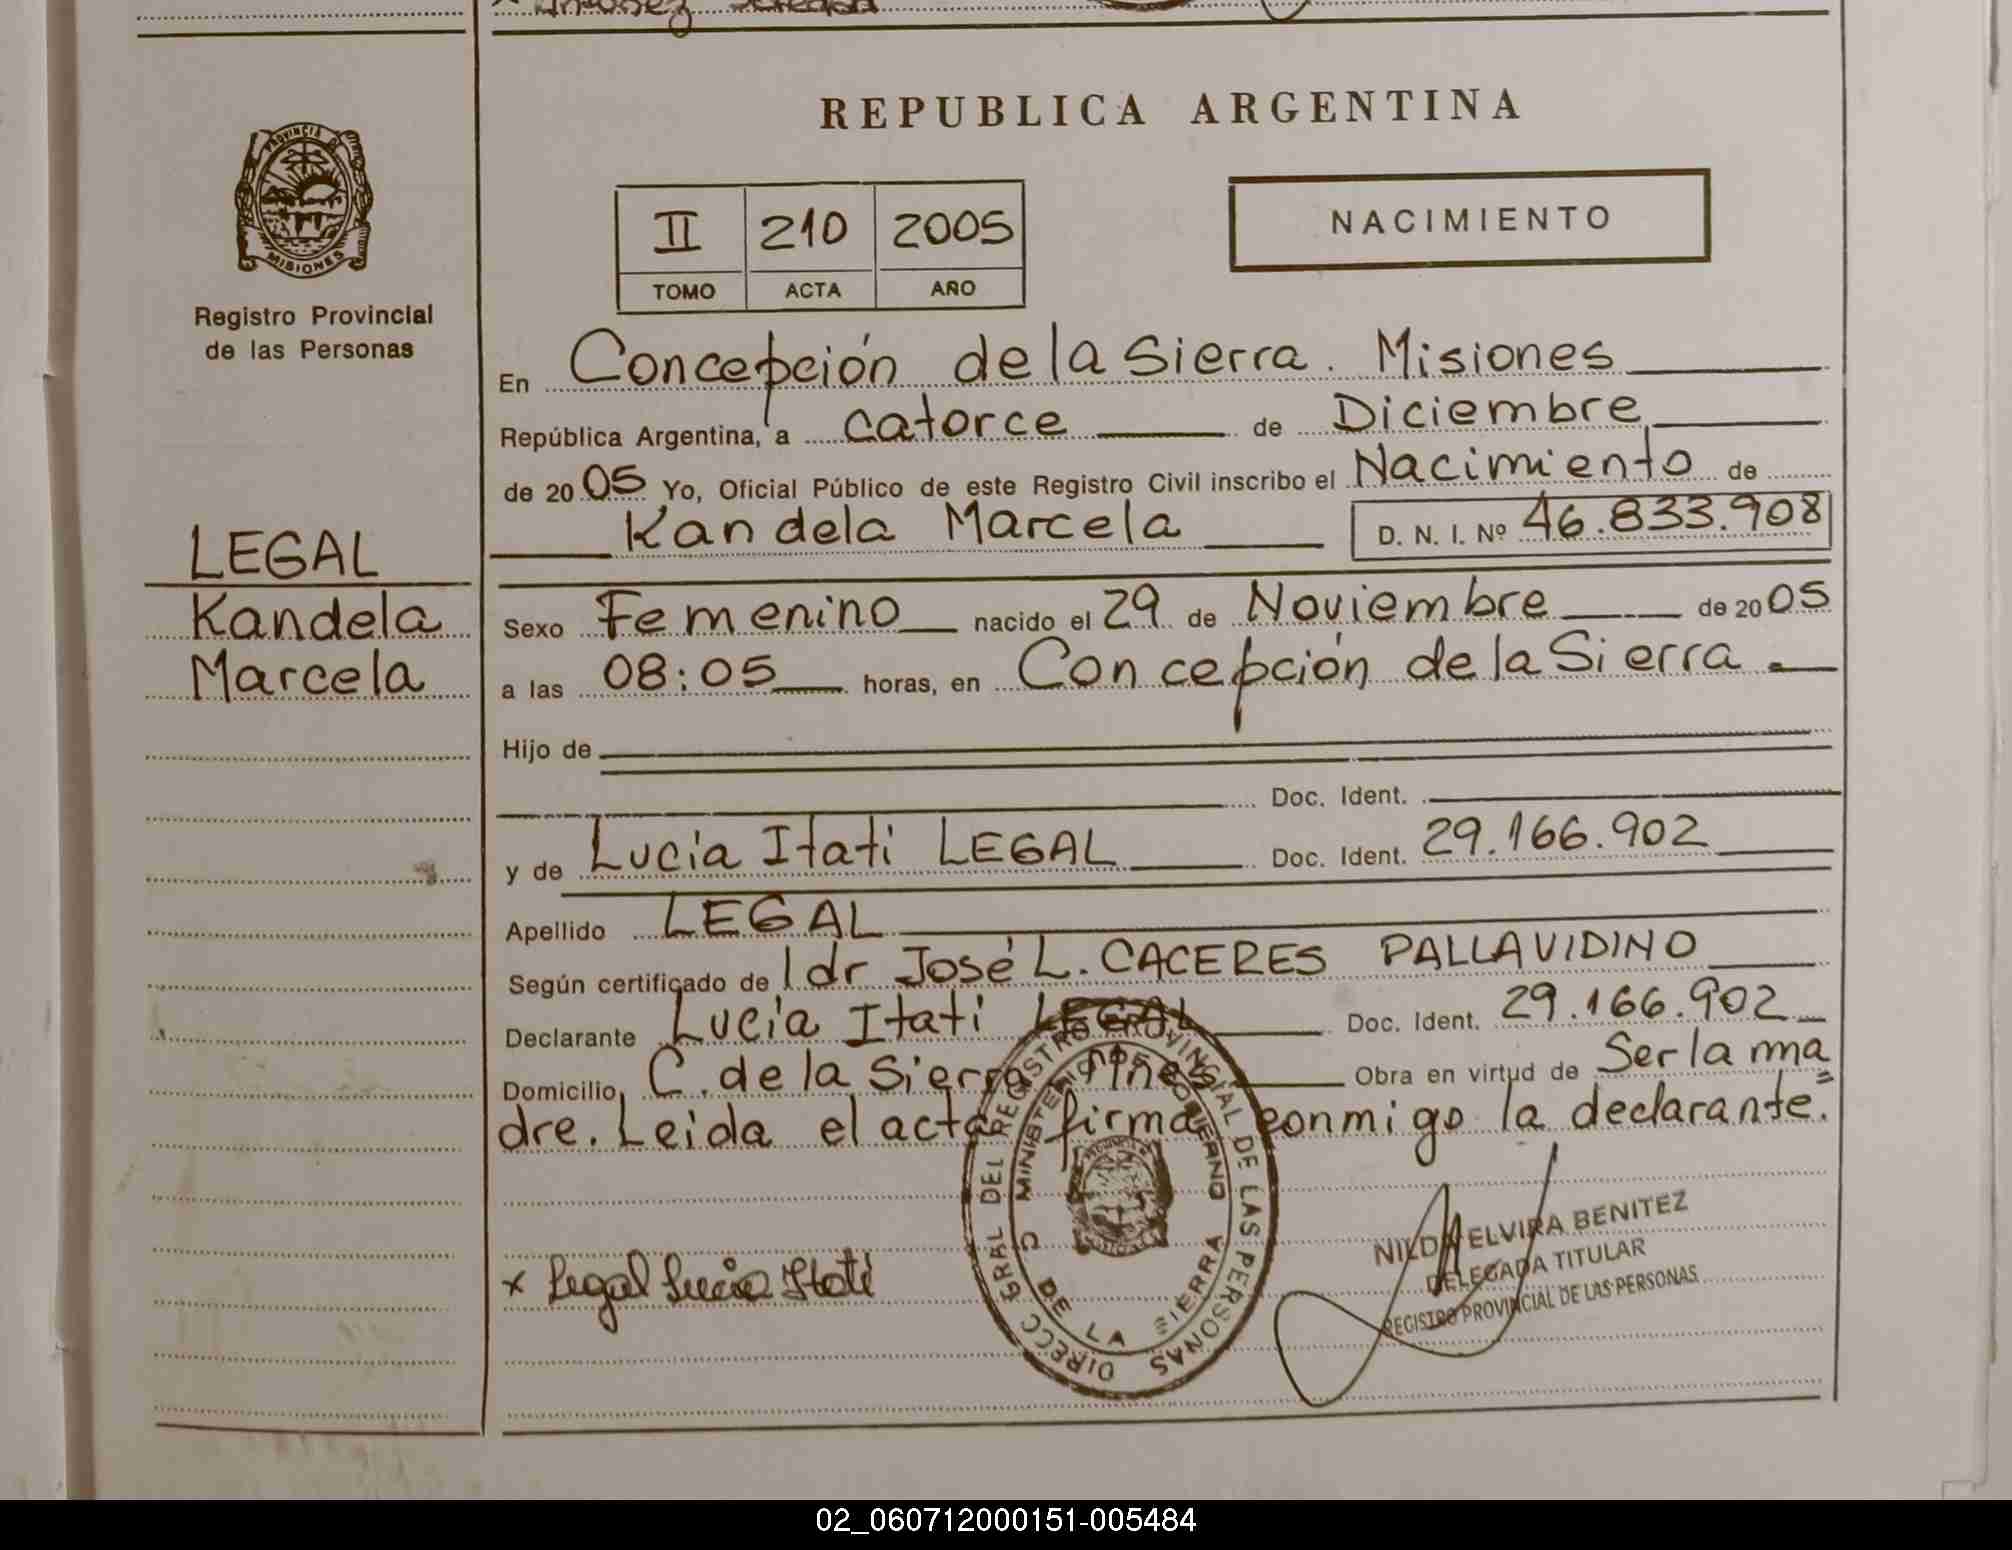 REPUBLICA ARGENTINA
PROVINCIA DE MISIONES
Registro Provincial
de las Personas
II 210 2005
TOMO ACTA AÑO
NACIMIENTO
En Concepción de la Sierra. Misiones
República Argentina, a catorce de Diciembre
de 2005 Yo, Oficial Público de este Registro Civil inscribo el Nacimiento de
Kandela Marcela D. N. I. Nº 46.833.908
LEGAL
Kandela
Marcela
Sexo Femenino nacido el 29 de Noviembre de 2005
a las 08:05 horas, en Concepción de la Sierra
Hijo de
Doc. Ident.
y de Lucia Itati LEGAL Doc. Ident. 29.166.902
Apellido LEGAL
Según certificado de l dr José L. CACERES PALLAVIDINO
Declarante Lucia Itati LEGAL Doc. Ident. 29.166.902
Domicilio C. de la Sierra Mnes Obra en virtud de Ser la ma
dre. Leida el acta firma conmigo la declarante.=
DIRECC GRAL DEL REGISTRO PROVINCIAL DE LAS PERSONAS
MINISTERIO DE GOBIERNO
C. DE LA SIERRA
x Legal Lucia Itati
NILDA ELVIRA BENITEZ
DELEGADA TITULAR
REGISTRO PROVINCIAL DE LAS PERSONAS
02_060712000151-005484